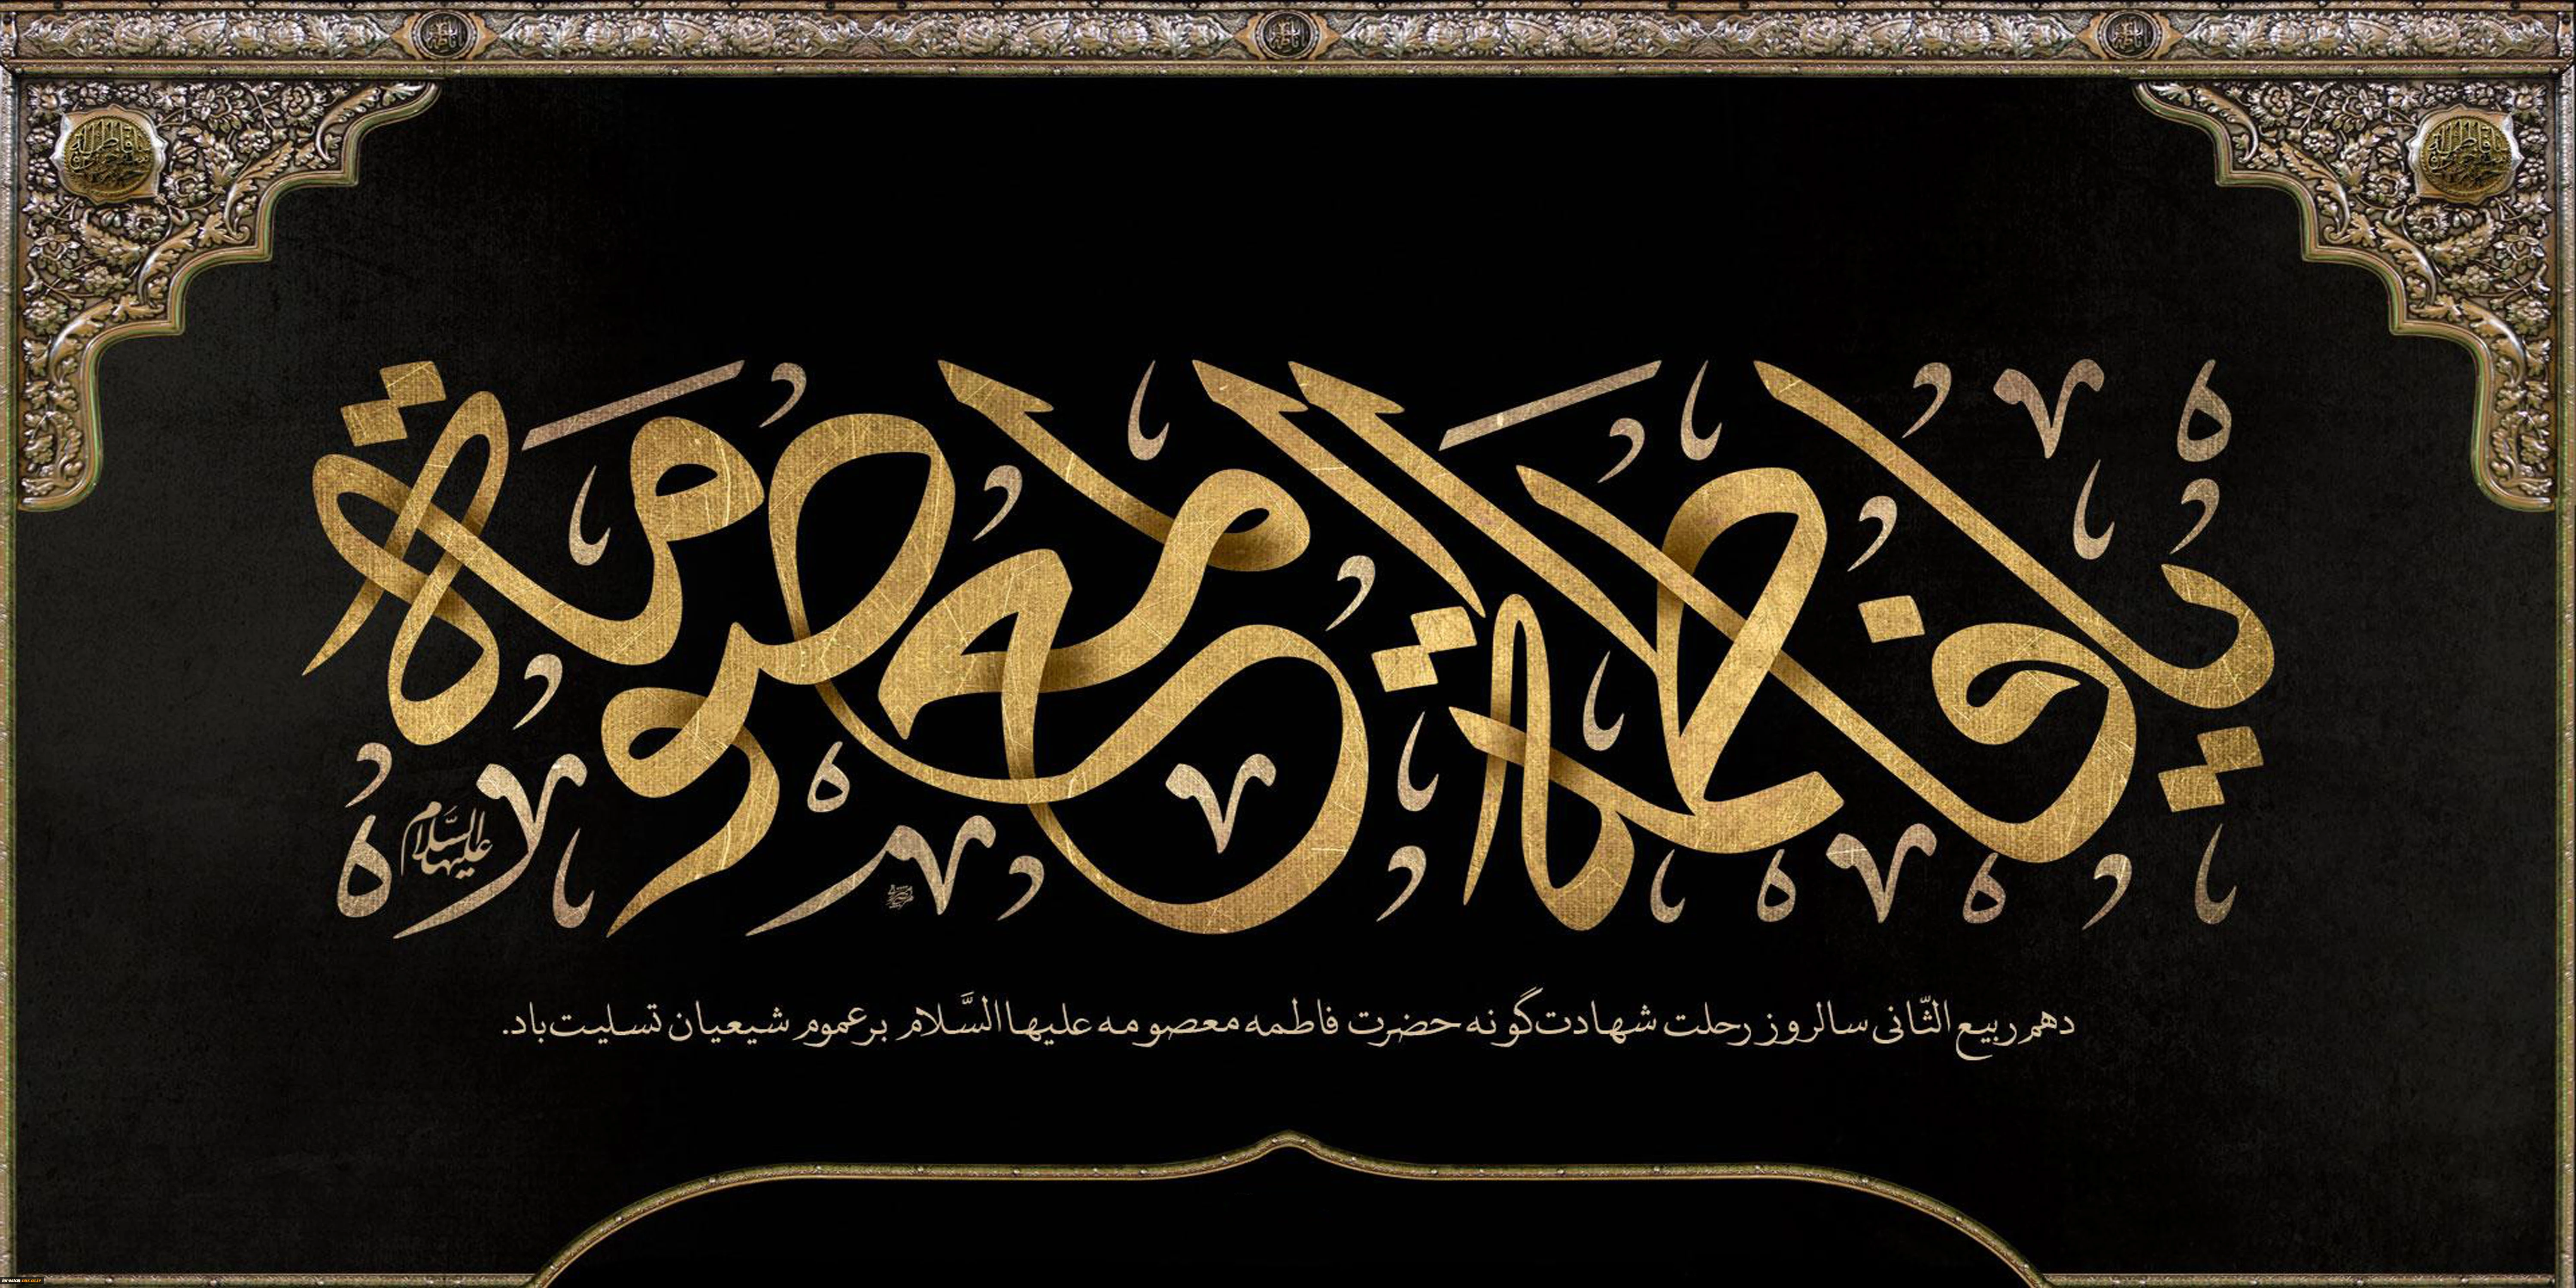 یا فاطمة المعصومة
علیها السّلام
دهم ربیع الثّانی سالروز رحلت شهادت‌گونه حضرت فاطمه معصومه علیها السَّلام بر عموم شیعیان تسلیت باد.